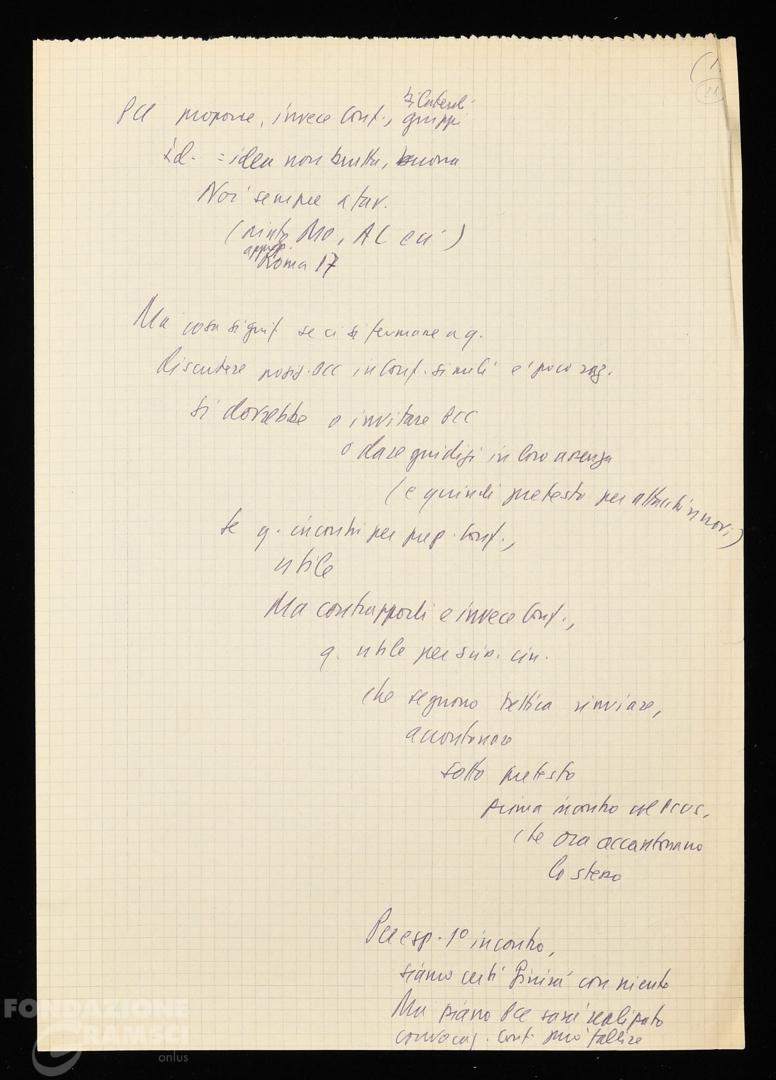 (1
21
bilaterali
PCI propone, invece Conf., gruppi
id. = idea non brutta, buona
Noi sempre a fav.
Mo, AC
Roma 17
Ma cosa signif. se ci si fermane a q.
Discutere poss. PCC in Conf. simili è poco rag.
Si dovrebbe o invitare PCC
o dare giudizi in loro assenza
(e quindi pretesto per attacchi nuovi)
Se q. incontri per prep. Conf.,
utile
Ma contrapporli e invece Conf.,
q. utile per sin. cin.
che seguono tattica rinviare,
accantonare
sotto pretesto
prima incontro col PCUS,
che ora accantonano
lo stesso
esp. 1º incontro,
siamo certi finirà con niente
Ma piano PCC sarà realizzato
convocaz. Conf. può fallire
FONDAZIONE
GRAMSCI
onlus